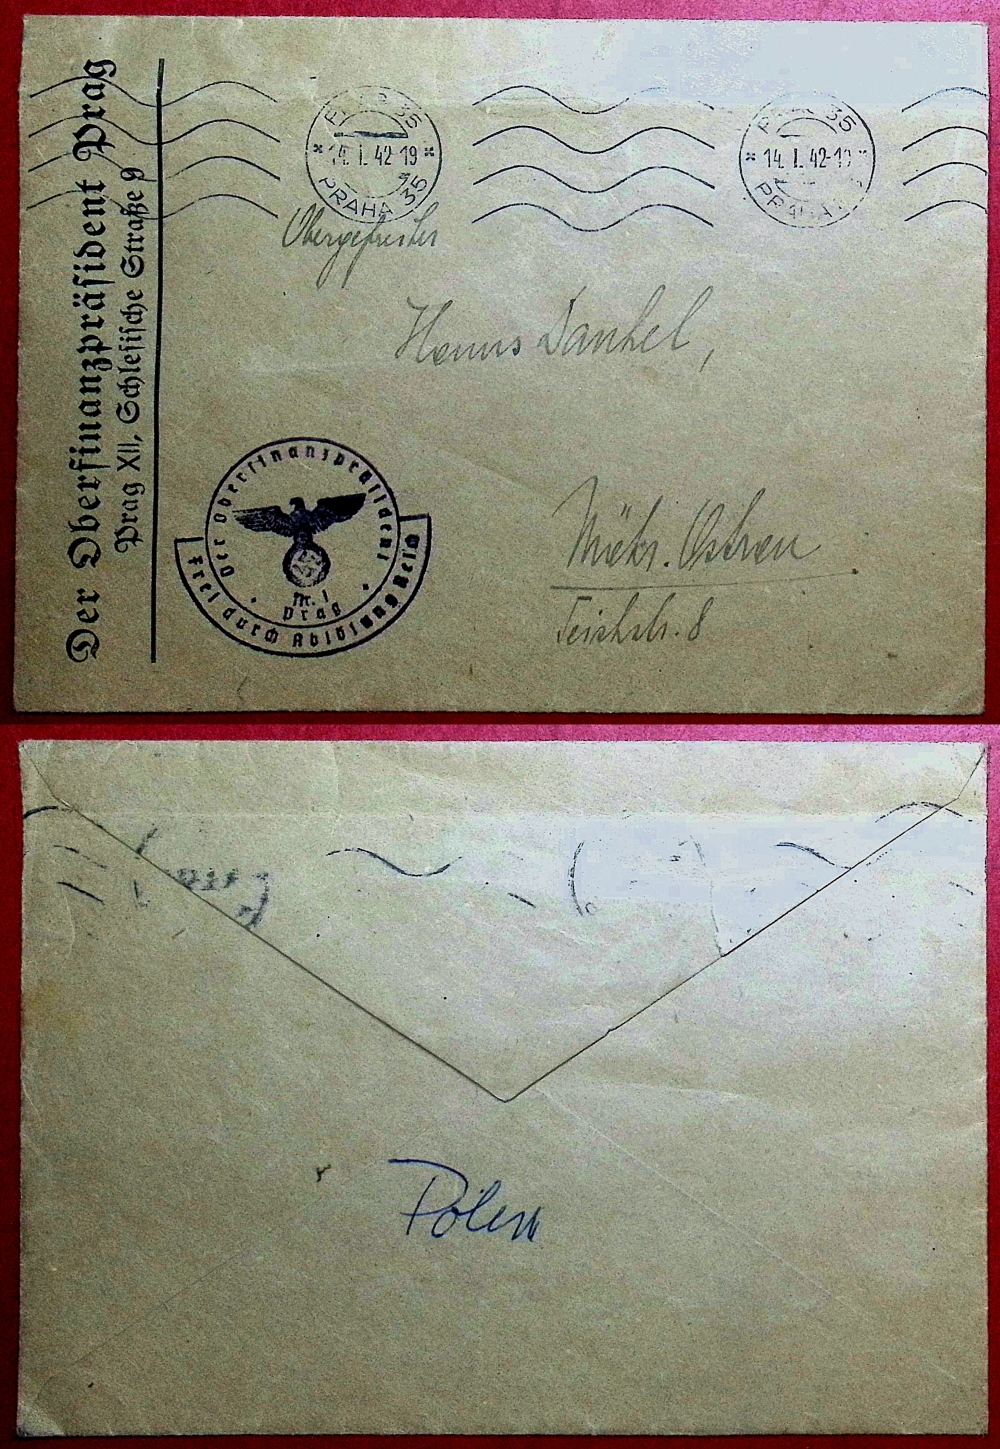 Der Oberfinanzpräsident Prag
Prag XII, Schlesische Straße 9
35
14. I. 42-19
PRAHA 35
35
14. I. 42-19
PRAHA
Obergefreiter
Hanns Dankel,
Mähr. Ostrau
Teichstr. 8
Der Oberfinanzpräsident
Nr. 1
Prag
Frei durch Ablösung Reich
Polen